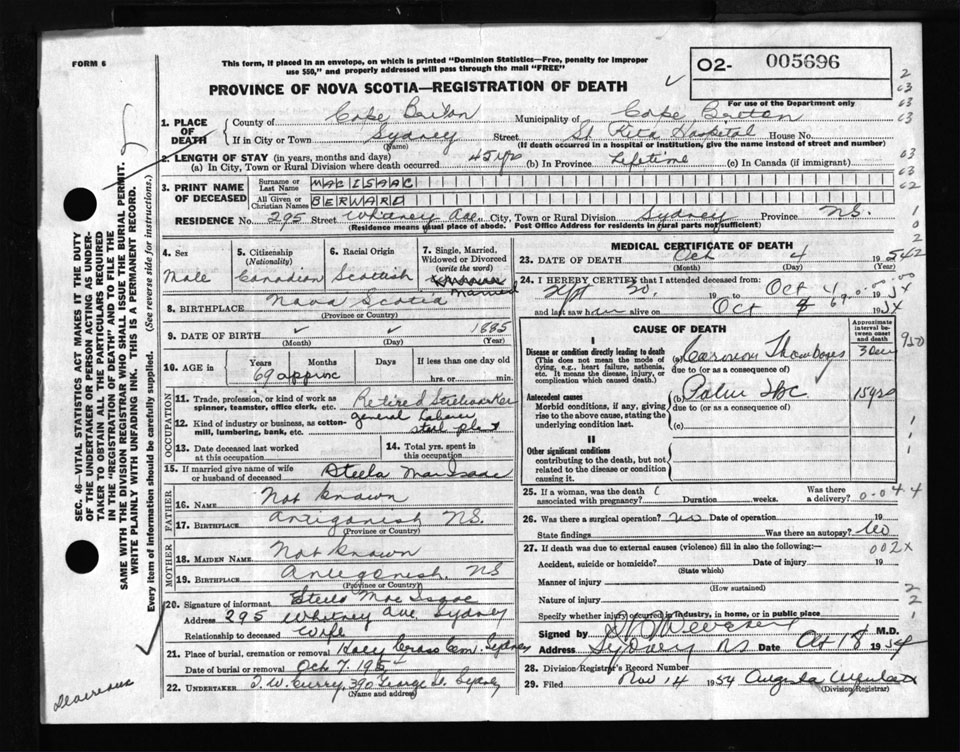 FORM 6
This form, if placed in an envelope, on which is printed "Dominion Statistics—Free, penalty for improper
use $50," and properly addressed will pass through the mail "FREE"
O2- 005696
For use of the Department only
PROVINCE OF NOVA SCOTIA—REGISTRATION OF DEATH
1. PLACE OF DEATH
County of Cape Breton Municipality of Cape Breton
If in City or Town Sydney Street St Rita Hospital House No.
(Name) (If death occurred in a hospital or institution, give the name instead of street and number)
2. LENGTH OF STAY (in years, months and days)
(a) In City, Town or Rural Division where death occurred 45 yrs (b) In Province Lifetime (c) In Canada (if immigrant)
3. PRINT NAME OF DECEASED
Surname or Last Name MAC ISAAC
All Given or Christian Names BERWARD
RESIDENCE No. 295 Street Whitney Ave., City, Town or Rural Division Sydney Province N.S.
(Residence means usual place of abode. Post Office Address for residents in rural parts not sufficient)
4. Sex
Male
5. Citizenship (Nationality)
Canadian
6. Racial Origin
Scottish
7. Single, Married, Widowed or Divorced (write the word)
Married
8. BIRTHPLACE Nova Scotia
(Province or Country)
9. DATE OF BIRTH 1885
(Month) (Day) (Year)
10. AGE in
Years Months Days If less than one day old
69 approx hrs. or min.
OCCUPATION
11. Trade, profession, or kind of work as spinner, teamster, office clerk, etc. Retired Steelworker
12. Kind of industry or business, as cotton-mill, lumbering, bank, etc. general labour steel plant
13. Date deceased last worked at this occupation
14. Total yrs. spent in this occupation
15. If married give name of wife or husband of deceased Steela MacIsaac
FATHER
16. NAME Not known
17. BIRTHPLACE Antigonish N.S.
(Province or Country)
MOTHER
18. MAIDEN NAME Not known
19. BIRTHPLACE Antigonish. NS
(Province or Country)
20. Signature of informant Steela Mac Isaac
Address 295 Whitney Ave, Sydney
Relationship to deceased Wife
21. Place of burial, cremation or removal Holy Cross Cem. Sydney
Date of burial or removal Oct 7. 195
22. UNDERTAKER T. W. Curry, 390 George St. Sydney
(Name and address)
MEDICAL CERTIFICATE OF DEATH
23. DATE OF DEATH Oct 4 1954
(Month) (Day) (Year)
24. I HEREBY CERTIFY that I attended deceased from:
Sept 20. 19 to Oct 4 19
and last saw h alive on Oct 19
CAUSE OF DEATH
Approximate interval between onset and death
I
Disease or condition directly leading to death
(This does not mean the mode of dying, e.g., heart failure, asthenia, etc. It means the disease, injury, or complication which caused death.)
(a)
due to (or as a consequence of)
Antecedent causes
Morbid conditions, if any, giving rise to the above cause, stating the underlying condition last.
(b)
due to (or as a consequence of)
(c)
II
Other significant conditions
contributing to the death, but not related to the disease or condition causing it.
25. If a woman, was the death associated with pregnancy? Duration weeks. Was there a delivery?
26. Was there a surgical operation? no Date of operation 19
State findings Was there an autopsy? No
27. If death was due to external causes (violence) fill in also the following:—
Accident, suicide or homicide? Date of injury 19
(State which)
Manner of injury
(How sustained)
Nature of injury
Specify whether injury occurred in industry, in home, or in public place
Signed by M.D.
Address Sydney NS Date Oct 18 1954
28. Division Registrar's Record Number
29. Filed Nov 14 1954 Augusta
(Division Registrar)
SEC. 46—VITAL STATISTICS ACT MAKES IT THE DUTY
OF THE UNDERTAKER OR PERSON ACTING AS UNDER-
TAKER TO OBTAIN ALL THE PARTICULARS REQUIRED
IN THE "REGISTRATION OF DEATH" AND TO FILE THE
SAME WITH THE DIVISION REGISTRAR WHO SHALL ISSUE THE BURIAL PERMIT.
WRITE PLAINLY WITH UNFADING INK. THIS IS A PERMANENT RECORD.
Every item of information should be carefully supplied. (See reverse side for instructions.)